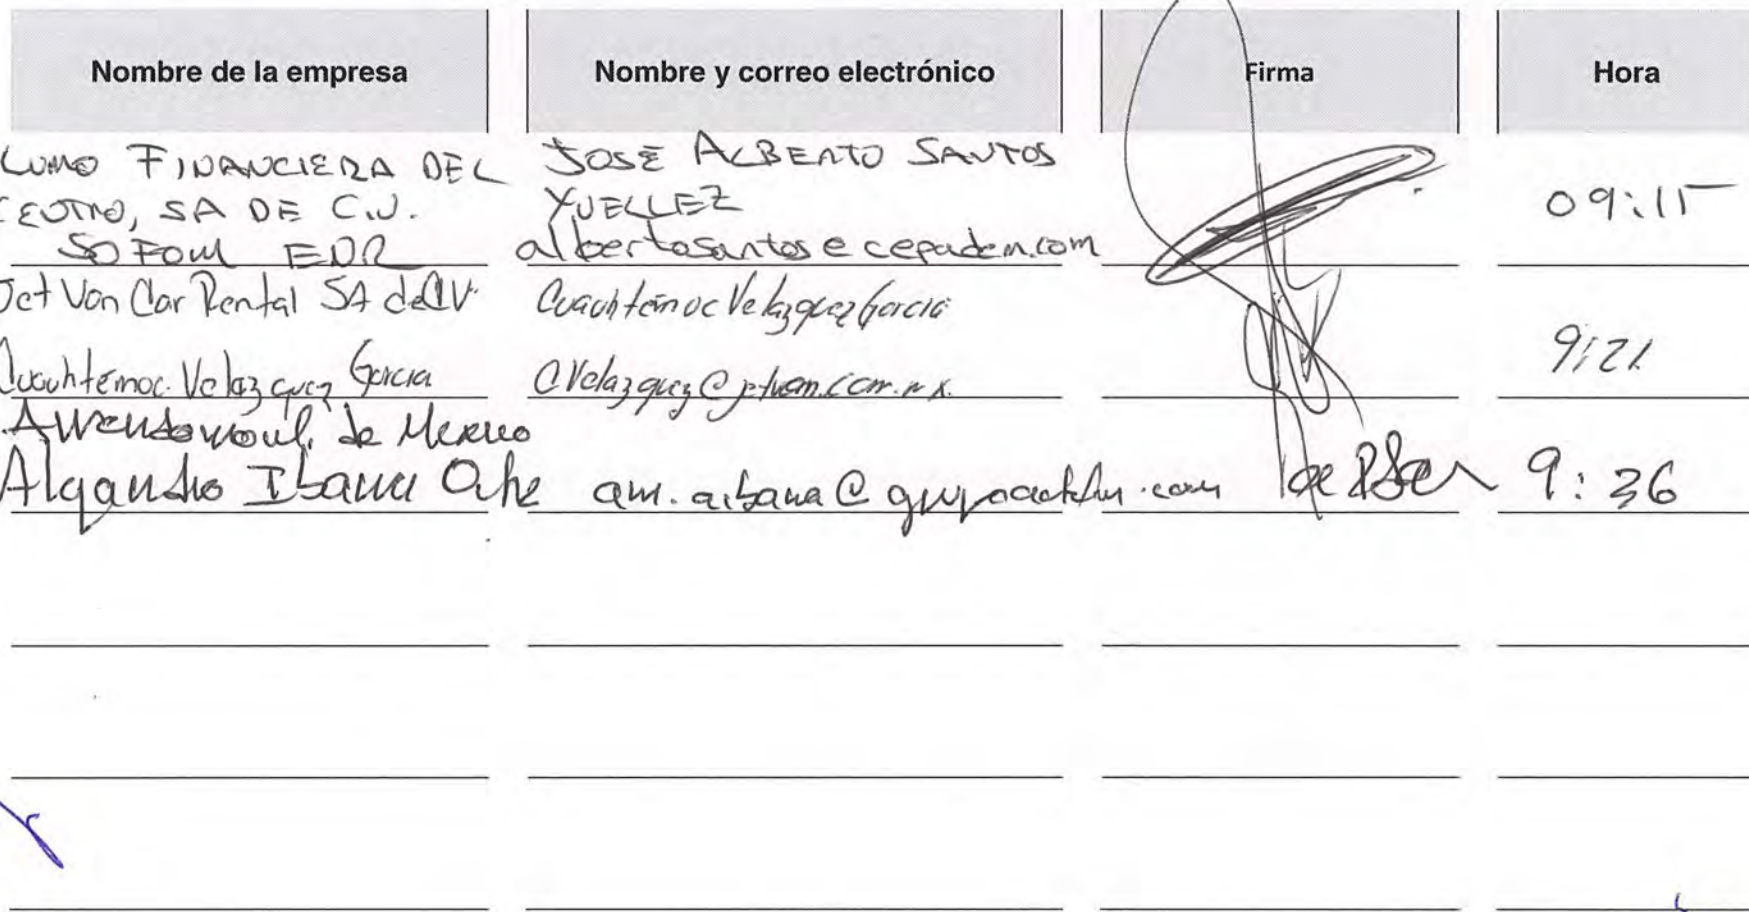 Nombre de la empresa
Nombre y correo electrónico
Firma
Hora
LUMO FINANCIERA DEL
CENTRO, SA DE C.V.
SOFOM ENR
JOSE ALBERTO SANTOS
YUELLEZ
albertosantos@cepadem.com
09:15
Jet Van Car Rental SA de CV
Cuauhtémoc Velazquez Garcia
Cuauhtémoc Velazquez Garcia
CVelazquez@jetvan.com.mx.
9:21
de Mexico
9:36